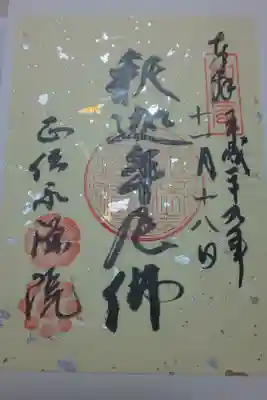 奉拝
平成二十九年
十一月十八日
釈迦牟尼佛
正伝永源院